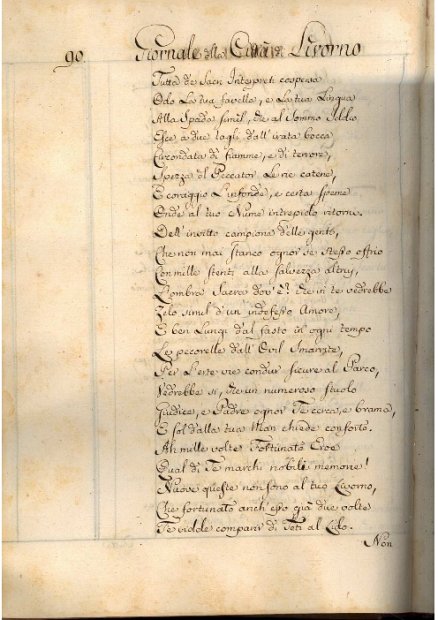 90. Giornale della Città di Livorno
Tutta de Sacri Interpreti cospersa
Odo La tua favella, e La tua Lingua
Alla Spada simil, che al Sommo Iddio
Esce a due tagli dall' irata bocca
Circondata di fiamme, e di terrore,
Spezza il Peccator Le rie catene,
E coraggio L'infonde, e certa speme
Onde al tuo Nume intrepido ritorni.
Dell' invitto campione delle genti,
Che non mai stanco ognor se stesso offrio
Con mille stenti alla salvezza altrui,
L'ombra Sacra dov'è? che in te vedrebbe
Zelo simil d'un indefesso Amore,
E ben Lungi dal fasto il ogni tempo
Le pecorelle dall' Ovil Smarrite,
Per L'erte vie condur sicure al Parco,
Vedrebbe si, che un numeroso stuolo
Giudice, e Padre ognor Te cerca, e brama,
E sol dalla tua Man chiede conforto.
Ah mille volte Fortunato Eroe
Qual di Te marchi nobili memorie!
Nuove queste non sono al tuo Livorno,
Che fortunato anch'esso già due volte
Te vidde comparir di Teti al Lido.
Non